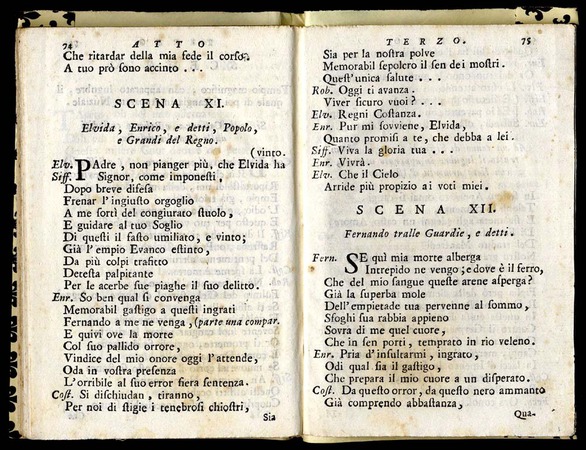 74 ATTO
Che ritardar della mia fede il corso.
A tuo prò sono accinto . . .
SCENA XI.
Elvida, Enrico, e detti, Popolo,
e Grandi del Regno.
(vinto.
Elv. PAdre, non pianger più, che Elvida ha
Siff. Signor, come imponesti,
Dopo breve difesa
Frenar l'ingiusto orgoglio
A me sortì del congiurato stuolo,
E guidare al tuo Soglio
Di questi il fasto umiliato, e vinto;
Già l'empio Evanco estinto,
Da più colpi trafitto
Detesta palpitante
Per le acerbe sue piaghe il suo delitto.
Enr. So ben qual si convenga
Memorabil gastigo a questi ingrati
Fernando a me ne venga, (parte una compar.
E quivi ove la morte
Col suo pallido orrore,
Vindice del mio onore oggi l'attende,
Oda in vostra presenza
L'orribile al suo error fiera sentenza.
Cost. Si dischiudan, tiranno,
Per noi di stigie i tenebrosi chiostri,
Sia
TERZO. 75
Sia per la nostra polve
Memorabil sepolcro il sen dei mostri.
Quest'unica salute . . .
Rob. Oggi ti avanza.
Viver sicuro vuoi? . . .
Elv. Regni Costanza.
Enr. Pur mi sovviene, Elvida,
Quanto promisi a te, che debba a lei.
Siff. Viva la gloria tua . . .
Enr. Vivrà.
Elv. Che il Cielo
Arride più propizio ai voti miei.
SCENA XII.
Fernando tralle Guardie, e detti.
Fern. SE quì mia morte alberga
Intrepido ne vengo; e dove è il ferro,
Che del mio sangue queste arene asperga?
Già la superba mole
Dell'empietade tua pervenne al sommo,
Sfoghi sua rabbia appieno
Sovra di me quel cuore,
Che in sen porti, temprato in rio veleno.
Enr. Pria d'insultarmi, ingrato,
Odi qual sia il gastigo,
Che prepara il mio cuore a un disperato.
Cost. Da questo orror, da questo nero ammanto
Già comprendo abbastanza,
Qua-